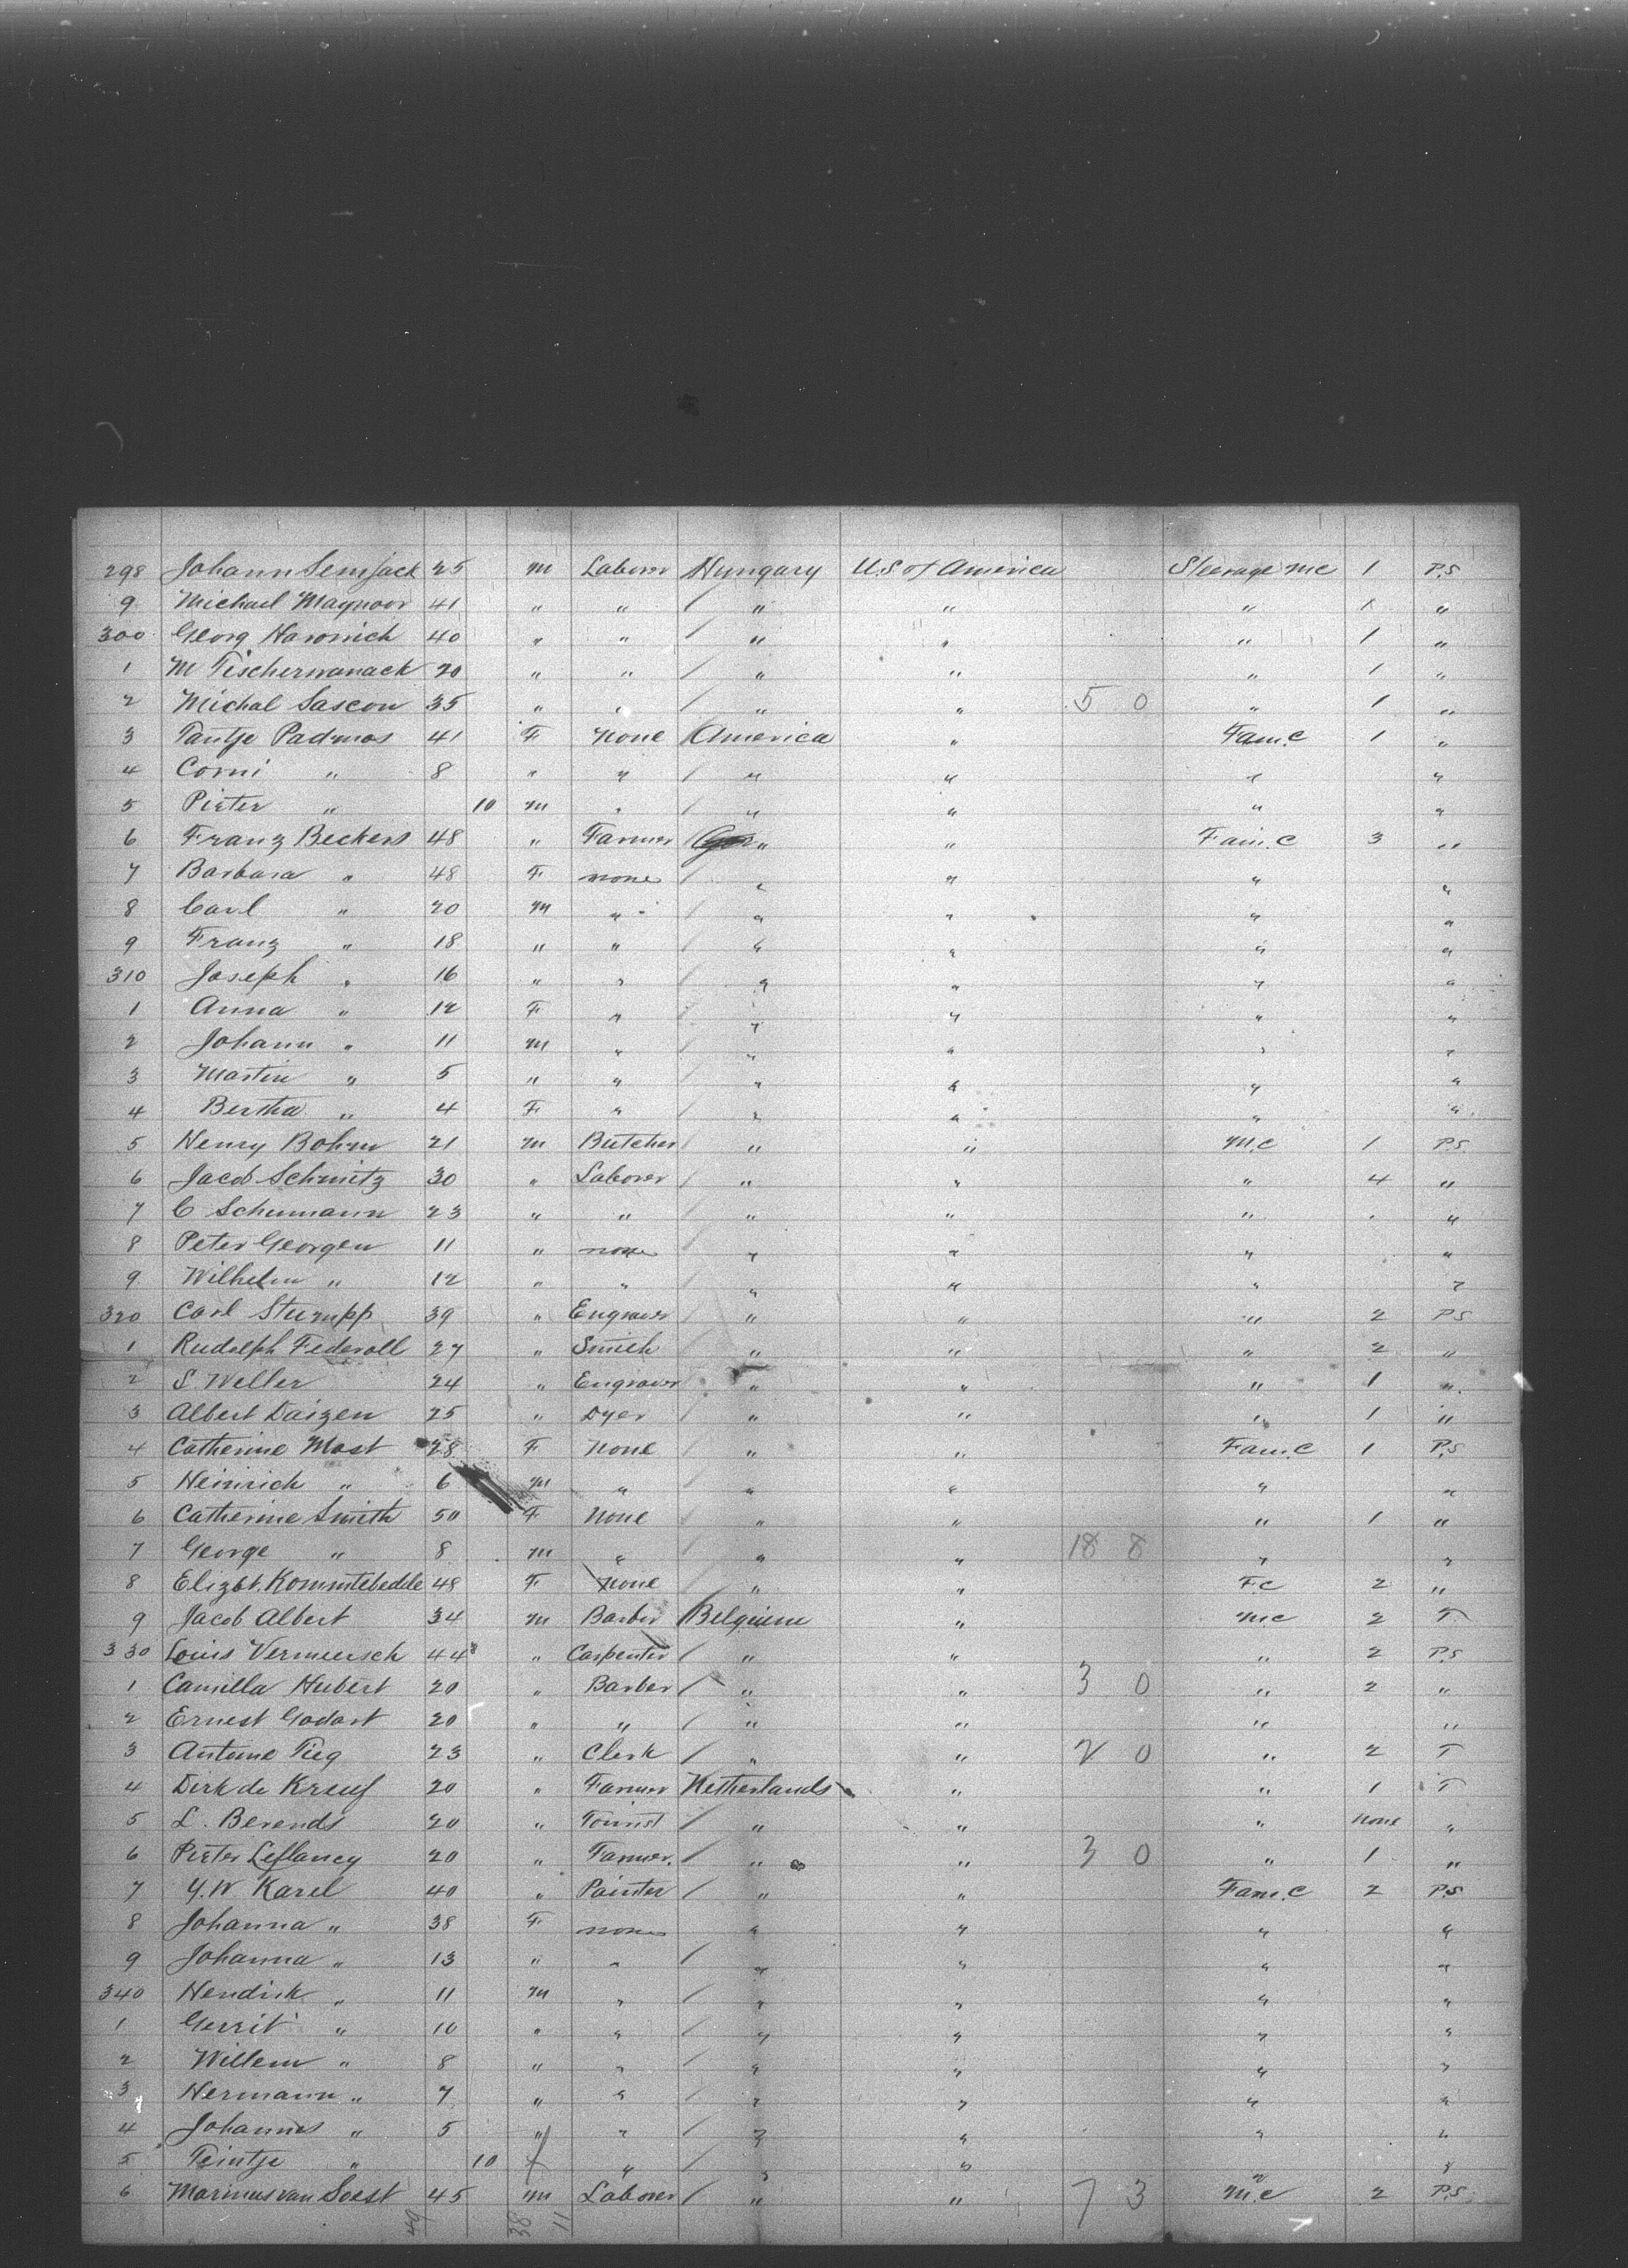 298 Johann Semjack 25 m Laborer Hungary U.S of America Steerage mc 1 P.S
9 Michael Maynoor 41 " " " " " 1 "
300 Georg Haronich 40 " " " " " 1 "
1 M Tischerwanack 20 " " " " " 1 "
2 Michal Sascou 35 " " " " 5 0 " 1 "
3 Tantje Padmos 41 F None America " Fam.C 1 "
4 Corni " 8 " " " " " "
5 Pieter " 10 m " " " " "
6 Franz Beckers 48 " Farmer " " Fam.C 3 "
7 Barbara " 48 F none " " " "
8 Carl " 20 m " " " " "
9 Franz " 18 " " " " " "
310 Joseph " 16 " " " " " "
1 Anna " 12 F " " " " "
2 Johann " 11 m " " " " "
3 Martin " 5 " " " " " "
4 Bertha " 4 F " " " " "
5 Henry Bohm 21 m Butcher " " M.C 1 P.S
6 Jacob Schmitz 30 " Laborer " " " 4 "
7 C Schumann 23 " " " " " "
8 Peter Georgen 11 " none " " " "
9 Wilhelm " 12 " " " " " "
320 Carl Stumpp 39 " Engraver " " " 2 PS
1 Rudolph Federoll 27 " Smith " " " 2 "
2 S. Weller 24 " Engraver " " " 1 "
3 Albert Daizen 25 " Dyer " " " 1 "
4 Catherine Mast 28 F None " " Fam.C 1 P.S
5 Heinrich " 6 m " " " " "
6 Catherine Smith 50 F None " " " 1 "
7 George " 8 m " " " 18 8 " "
8 Elizbt. Kommtebedele 48 F None " " F.C 2 "
9 Jacob Albert 34 m Barber Belgium " m c 2 T
330 Louis Vermeersch 44 " Carpenter " " " 2 P.S
1 Camilla Hubert 20 " Barber " " 3 0 " 2 "
2 Ernest Godart 20 " " " " " "
3 Antoine Pieg 23 " Clerk " " 2 0 " 2 T
4 Dirk de Kreuf 20 " Farmer Netherlands " " 1 T
5 L. Berends 20 " Tourist " " " none "
6 Pieter Leflancy 20 " Farmer. " " 3 0 " 1 "
7 Y.W Karel 40 " Painter " " Fam.C 2 P.S
8 Johanna " 38 F none " " " "
9 Johanna " 13 " " " " " "
340 Hendrik " 11 m " " " " "
1 Gerrit " 10 " " " " " "
2 Willem " 8 " " " " " "
3 Hermann " 7 " " " " " "
4 Johannes " 5 " " " " " "
5 Teintje " 10 f " " " " "
6 Marinus van Soest 45 m Laborer " " 7 3 M.C 2 P.S.
49 38 11